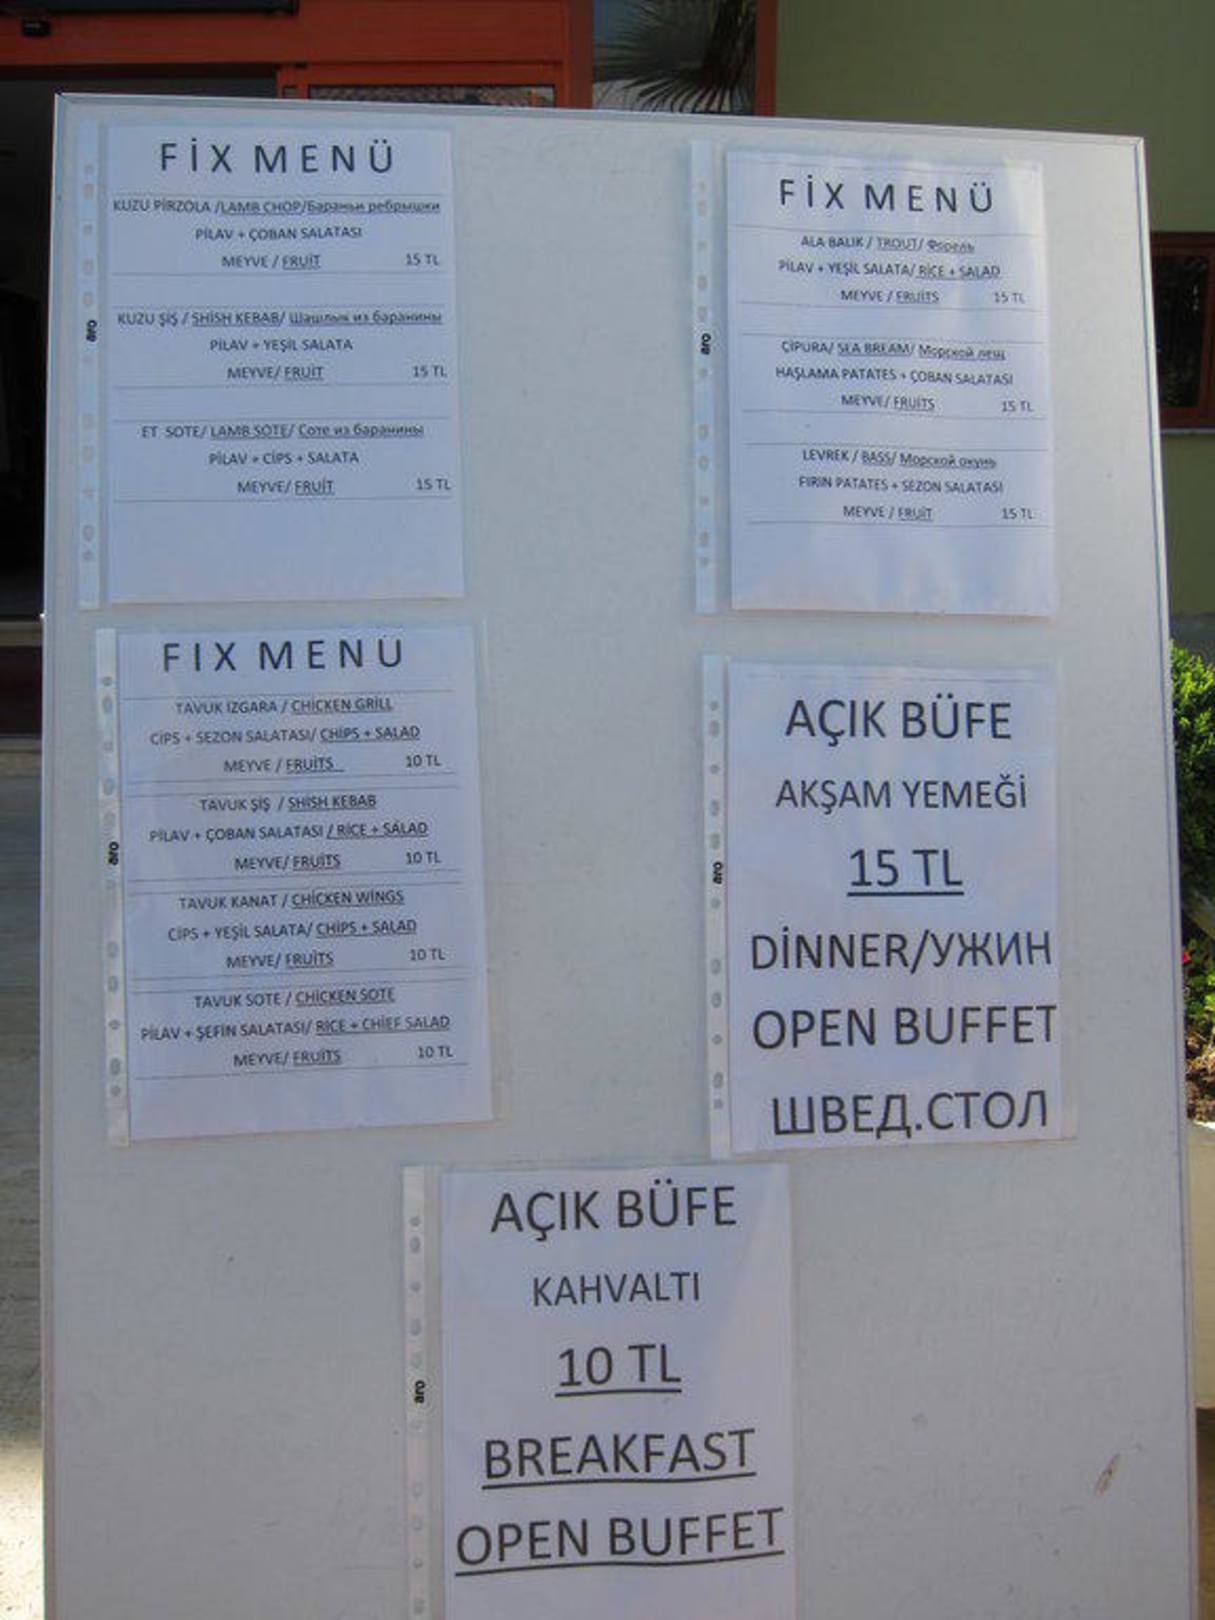 FİX MENÜ
KUZU PİRZOLA /LAMB CHOP/Бараньи ребрышки
PİLAV + ÇOBAN SALATASI
MEYVE / FRUIT 15 TL
KUZU ŞİŞ / SHISH KEBAB/ Шашлык из баранины
PİLAV + YEŞİL SALATA
MEYVE/ FRUIT 15 TL
ET SOTE/ LAMB SOTE/ Соте из баранины
PİLAV + CİPS + SALATA
MEYVE/ FRUIT 15 TL
aro
FİX MENÜ
ALA BALIK / TROUT/ Форель
PİLAV + YEŞİL SALATA/ RİCE + SALAD
MEYVE / FRUİTS 15 TL
ÇİPURA/ SEA BREAM/ Морской лещ
HAŞLAMA PATATES + ÇOBAN SALATASI
MEYVE/ FRUİTS 15 TL
LEVREK / BASS/ Морской окунь
FIRIN PATATES + SEZON SALATASI
MEYVE / FRUİT 15 TL
aro
FIX MENU
TAVUK IZGARA / CHİCKEN GRİLL
CİPS + SEZON SALATASI/ CHİPS + SALAD
MEYVE / FRUİTS 10 TL
TAVUK ŞİŞ / SHİSH KEBAB
PİLAV + ÇOBAN SALATASI / RİCE + SALAD
MEYVE/ FRUİTS 10 TL
TAVUK KANAT / CHİCKEN WİNGS
CİPS + YEŞİL SALATA/ CHİPS + SALAD
MEYVE/ FRUİTS 10 TL
TAVUK SOTE / CHİCKEN SOTE
PİLAV + ŞEFİN SALATASI/ RİCE + CHİEF SALAD
MEYVE/ FRUİTS 10 TL
aro
AÇIK BÜFE
AKŞAM YEMEĞİ
15 TL
DİNNER/УЖИН
OPEN BUFFET
ШВЕД.СТОЛ
aro
AÇIK BÜFE
KAHVALTI
10 TL
BREAKFAST
OPEN BUFFET
aro